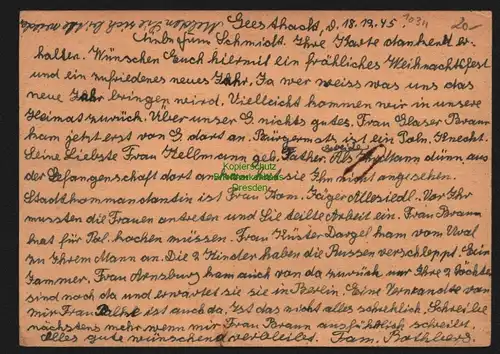 Melden Sie sich bitte wieder
Geesthacht, d. 18.12.45
20-
Liebe Fam Schmidt. Ihre Karte dankend er-
halten. Wünschen Euch hiermit ein fröhliches Weihnachtsfest
und ein zufriedenes neues Jahr. Ja wer weiss was uns das
neue Jahr bringen wird. Vielleicht kommen wir in unsere
Heimat zurück. Über unser G. nichts gutes. Frau Glaser Braun
kam jetzt erst von G. dort an. Bürgermstr. ist ein Poln. Knecht.
Seine Liebste Frau Kellmann geb. Father. Als Ihr Mann dünn aus
der Gefangenschaft dort ankam wurde sie Ihn nicht angesehen.
Stadtkommandantin ist Frau Hom. Jäger Allesiedl. Vor Ihr
mussten die Frauen antreten und Sie teilte Arbeit ein. Frau Braun
hat für Pol. kochen müssen. Frau Küster Dargel kam vom Ural
zu Ihrem Mann an. Die 2 Kinder haben die Russen verschleppt. Ein
Jammer. Frau Arnsburg kam auch von da zurück nur Ihre 2 Töchter
sind noch da und erwartet sie sie in Berlin. Eine Verwandte von
mir Frau ist auch da. Ist das nicht alles schreklich. Schreibe
nächstens mehr wenn mir Frau Braun ausführlich schreibt.
Alles gute wünschend verbleibt. Fam. Bothberg.
Kopierschutz
Briefmarkenhaus
Dresden